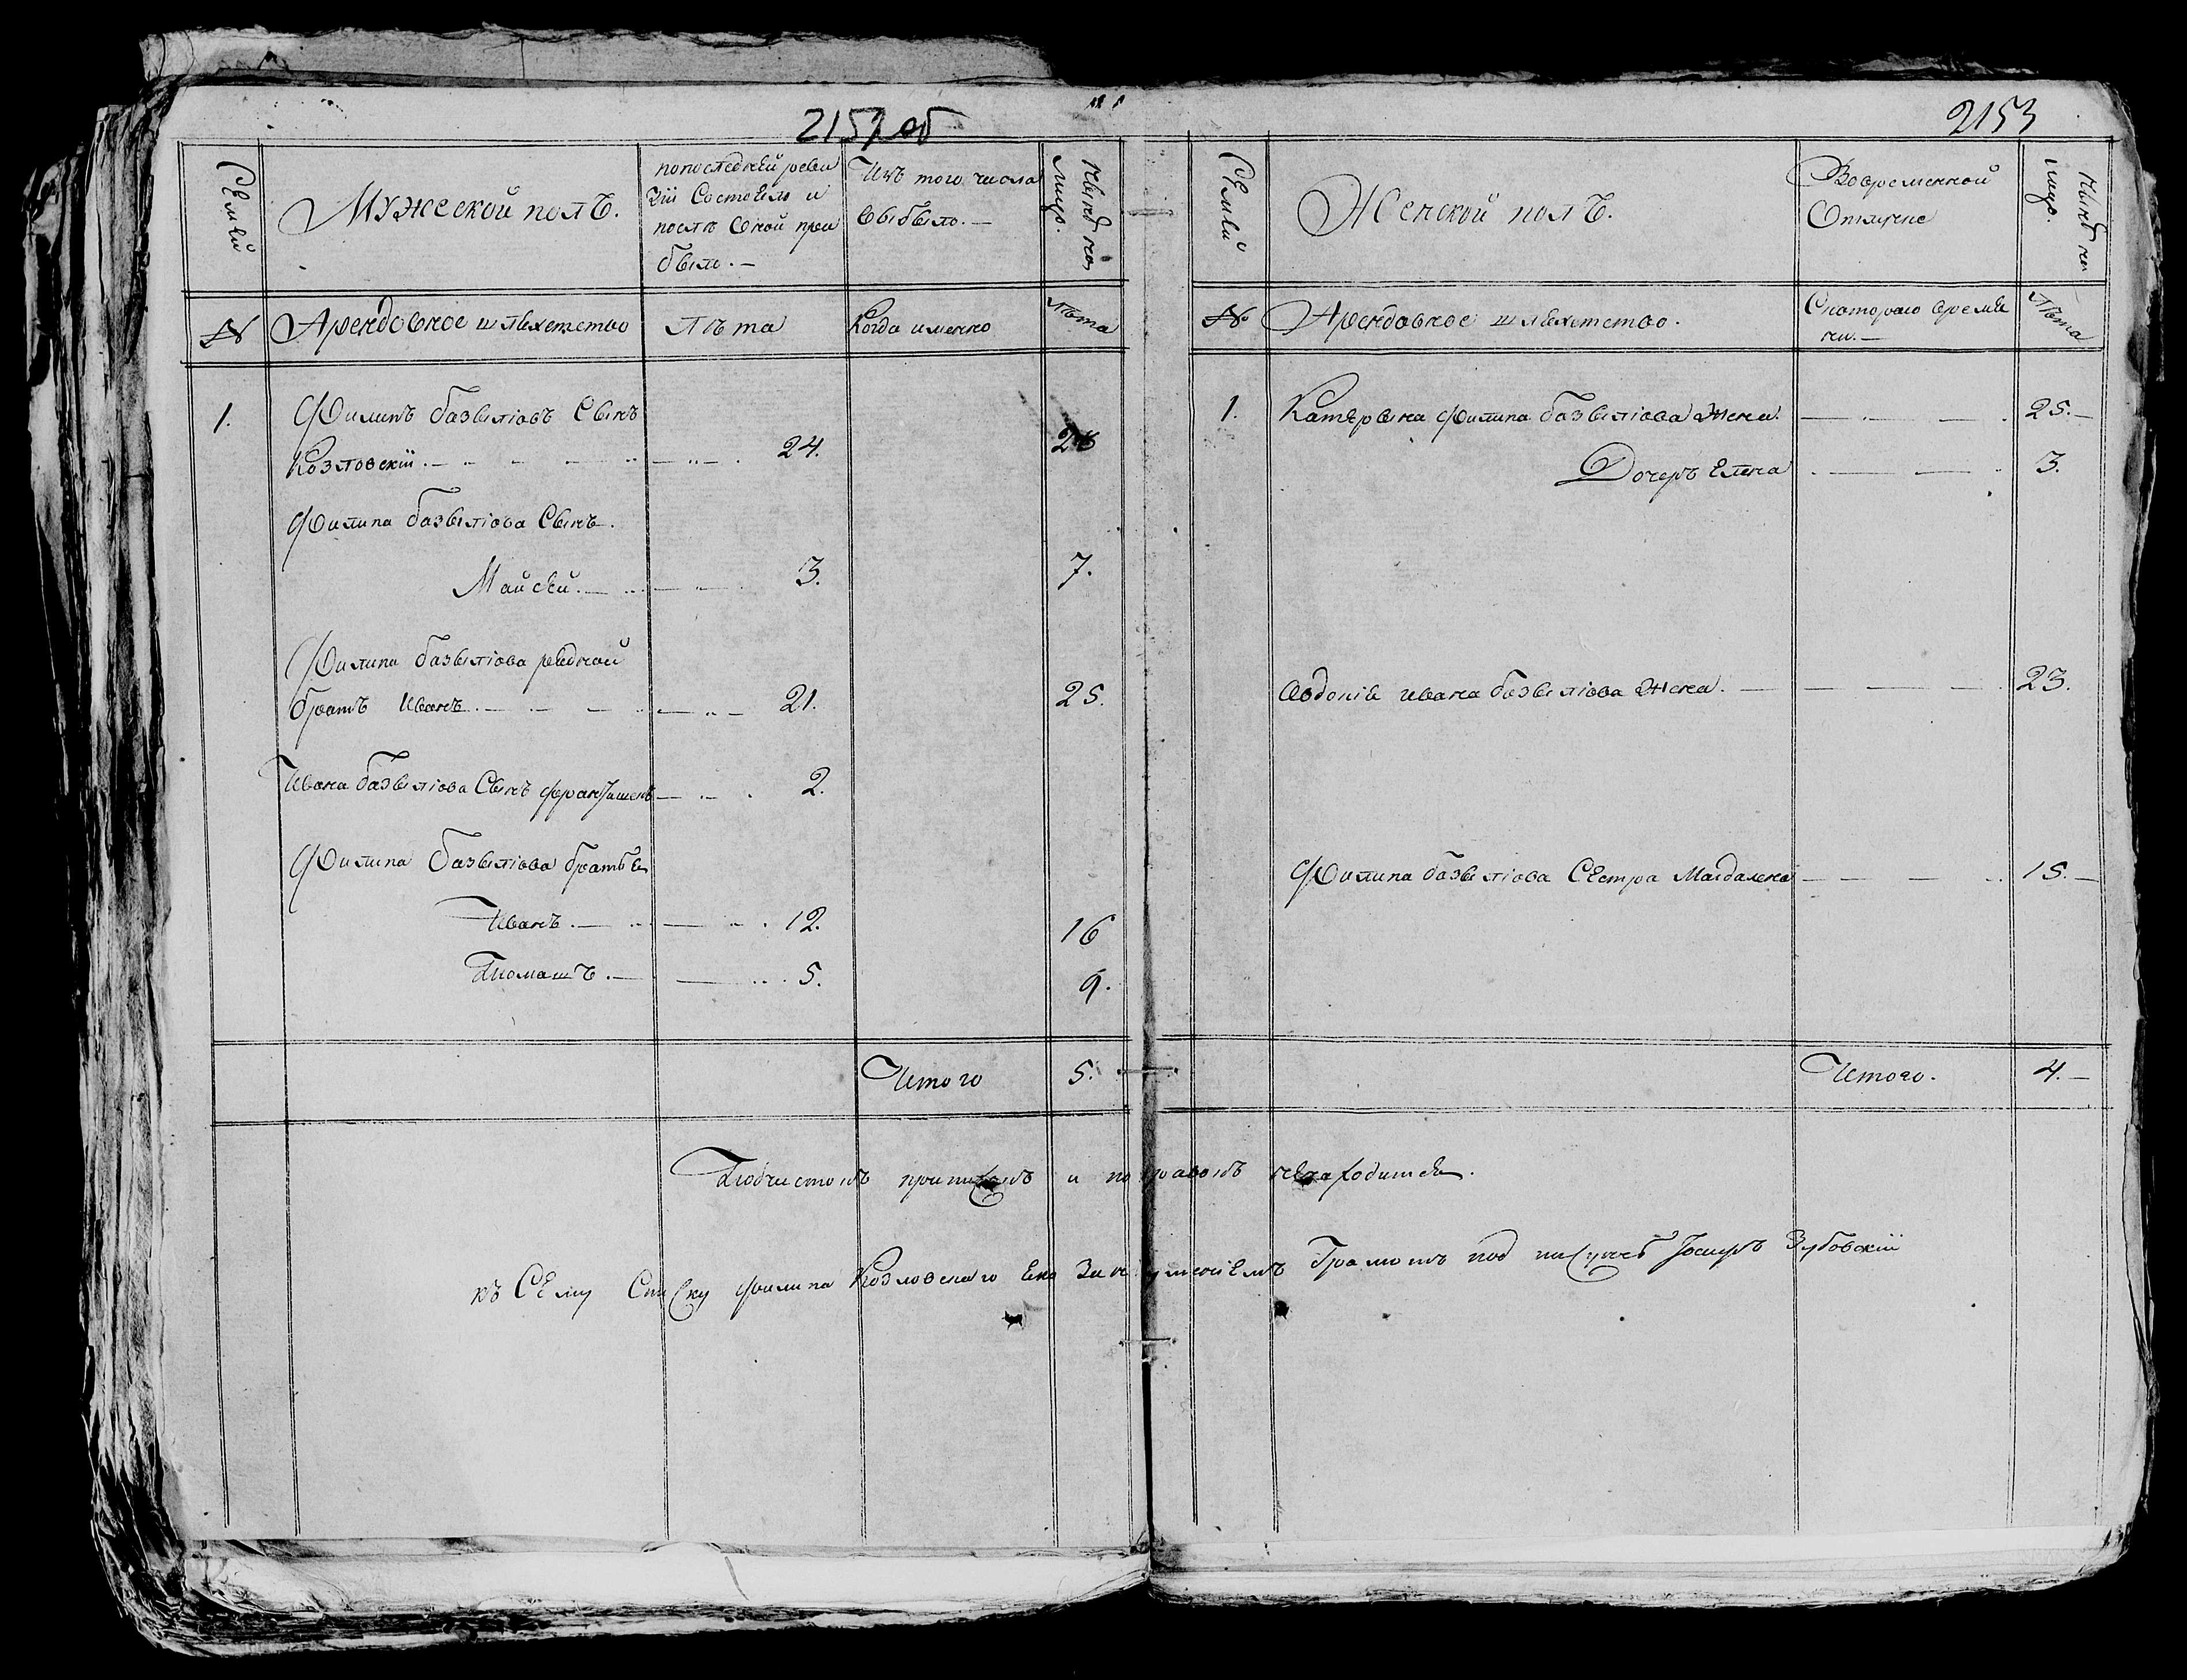 2152 об
2153
Семьи
Мужеской полъ.
попоследней реви
зіи Состояло и
послѣ Оной при
было. —
Изъ того числа
выбыло. —
Нынѣ на
лицо.
№
Арендовное шляхетство
лѣта
Когда именно
лѣта
1.
Филипъ базылювъ Сынъ
Козловскій. 24. 28
Филипа базылюва Сынъ.
Майсей. 3. 7.
Филипа базылюва родной
братъ Иванъ. 21. 25.
Ивана базылюва Сынъ францишекъ 2.
Филипа базылюва братья
Иванъ. 12. 16
Томашъ. 5. 9.
Итого 5.
Семьи
Женской полъ.
Вовременной
Отлучке
Нынѣ на
лицо.
№
Арендовное шляхетство.
Скотораго време
ни. —
лѣта
1. Катерына филипа базылюва Жена. 25. —
Дочеръ Елена 3.
Авдотя ивана базылюва Жена. 23.
Филипа базылюва Сестра Магдалена 15. —
Итого. 4. —
приписокъ и поправокъ ненаходится.
къ Сему Списку филипа Козловского Грамотѣ Зубовскій